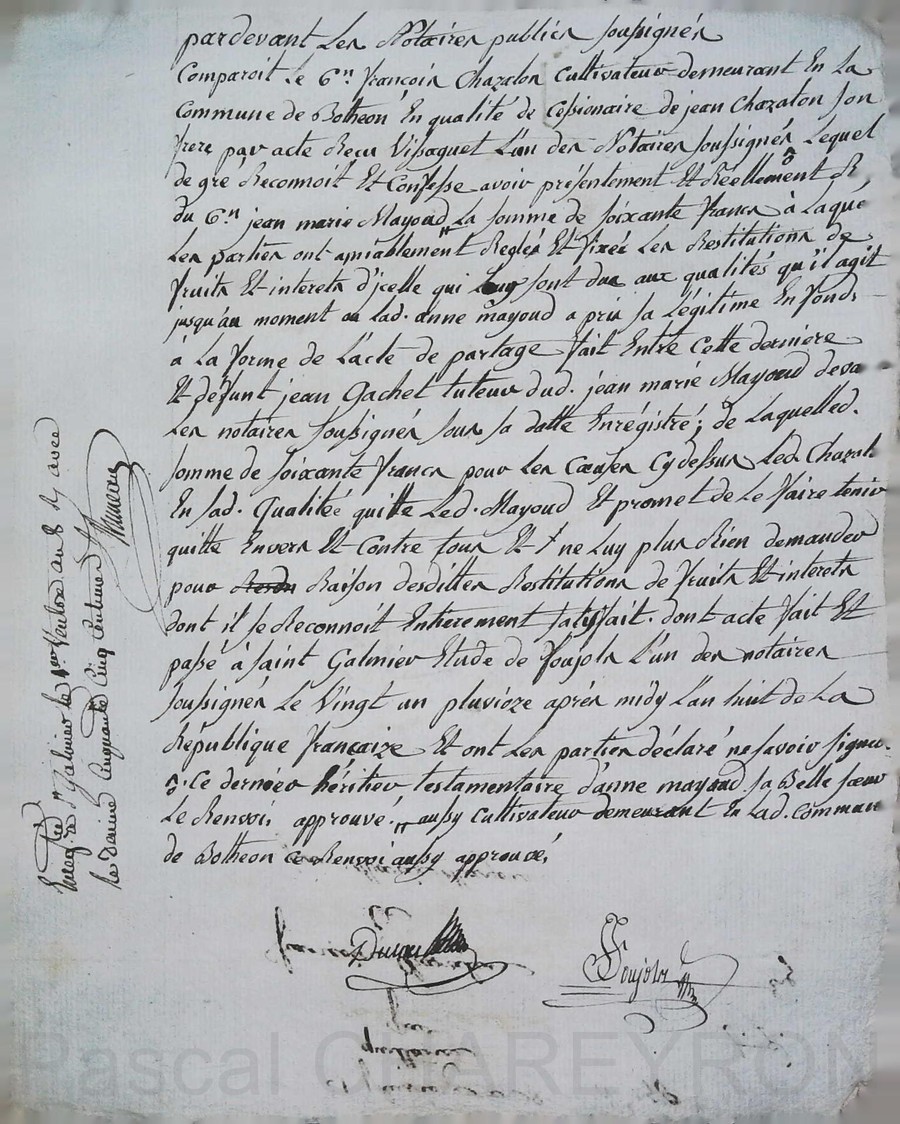 pardevant Les Notaires publics soussignés
Comparoit Le Cn. françois Chazalon Cultivateur demeurant En La
Commune de Botheon En qualité de Cessionaire de jean Chazalon son
frere par acte Recu Vissaguet L'un des Notaires soussignés Lequel
de gre Reconnoit Et Confesse avoir présentement Et Réellement R
du Cn. jean marie Mayoud La somme de soixante francs à Laque
Les parties ont amiablement Reglés Et fixée Les Restitutions de
fruits Et interets d'jcelle qui Luy sont dus aux qualités qu'il agit
jusqu'au moment ou Lad. anne mayoud a pris sa Légitime En fonds
à La forme de L'acte de partage fait Entre Cette derniere
Et défunt jean Gachet tuteur dud. jean marie Mayoud deva
Les notaires soussignés sous sa datte Enrégistré; de Laquelled.
somme de soixante francs pour Les Causes Cydessus Led. Chazal
En sad. Qualitée quitte Led. Mayoud Et promet de Le faire tenir
quitte Envers Et Contre tous Et ne Luy plus Rien demander
pour Raison desdittes Restitutions de fruits Et interets
dont il se Reconnoit Entierement satisfait. dont acte fait Et
passé à saint Galmier Etude de foujols L'un des notaires
soussignés Le Vingt un pluvioze après midy L'an huit de La
République françaize Et ont Les parties déclaré ne savoir signer
Ce dernier héritier testamentaire d'anne mayoud sa Belle sœur
Le Renvoi approuvé. aussy Cultivateur demeurant En Lad. commune
de Botheon Ce Renvoi aussy approuvé,
foujols
Enregtré à St Galmier le 1er Ventose an 8 R avec
le Dixime Cinquante Cinq Centimes
Pascal CHAREYRON